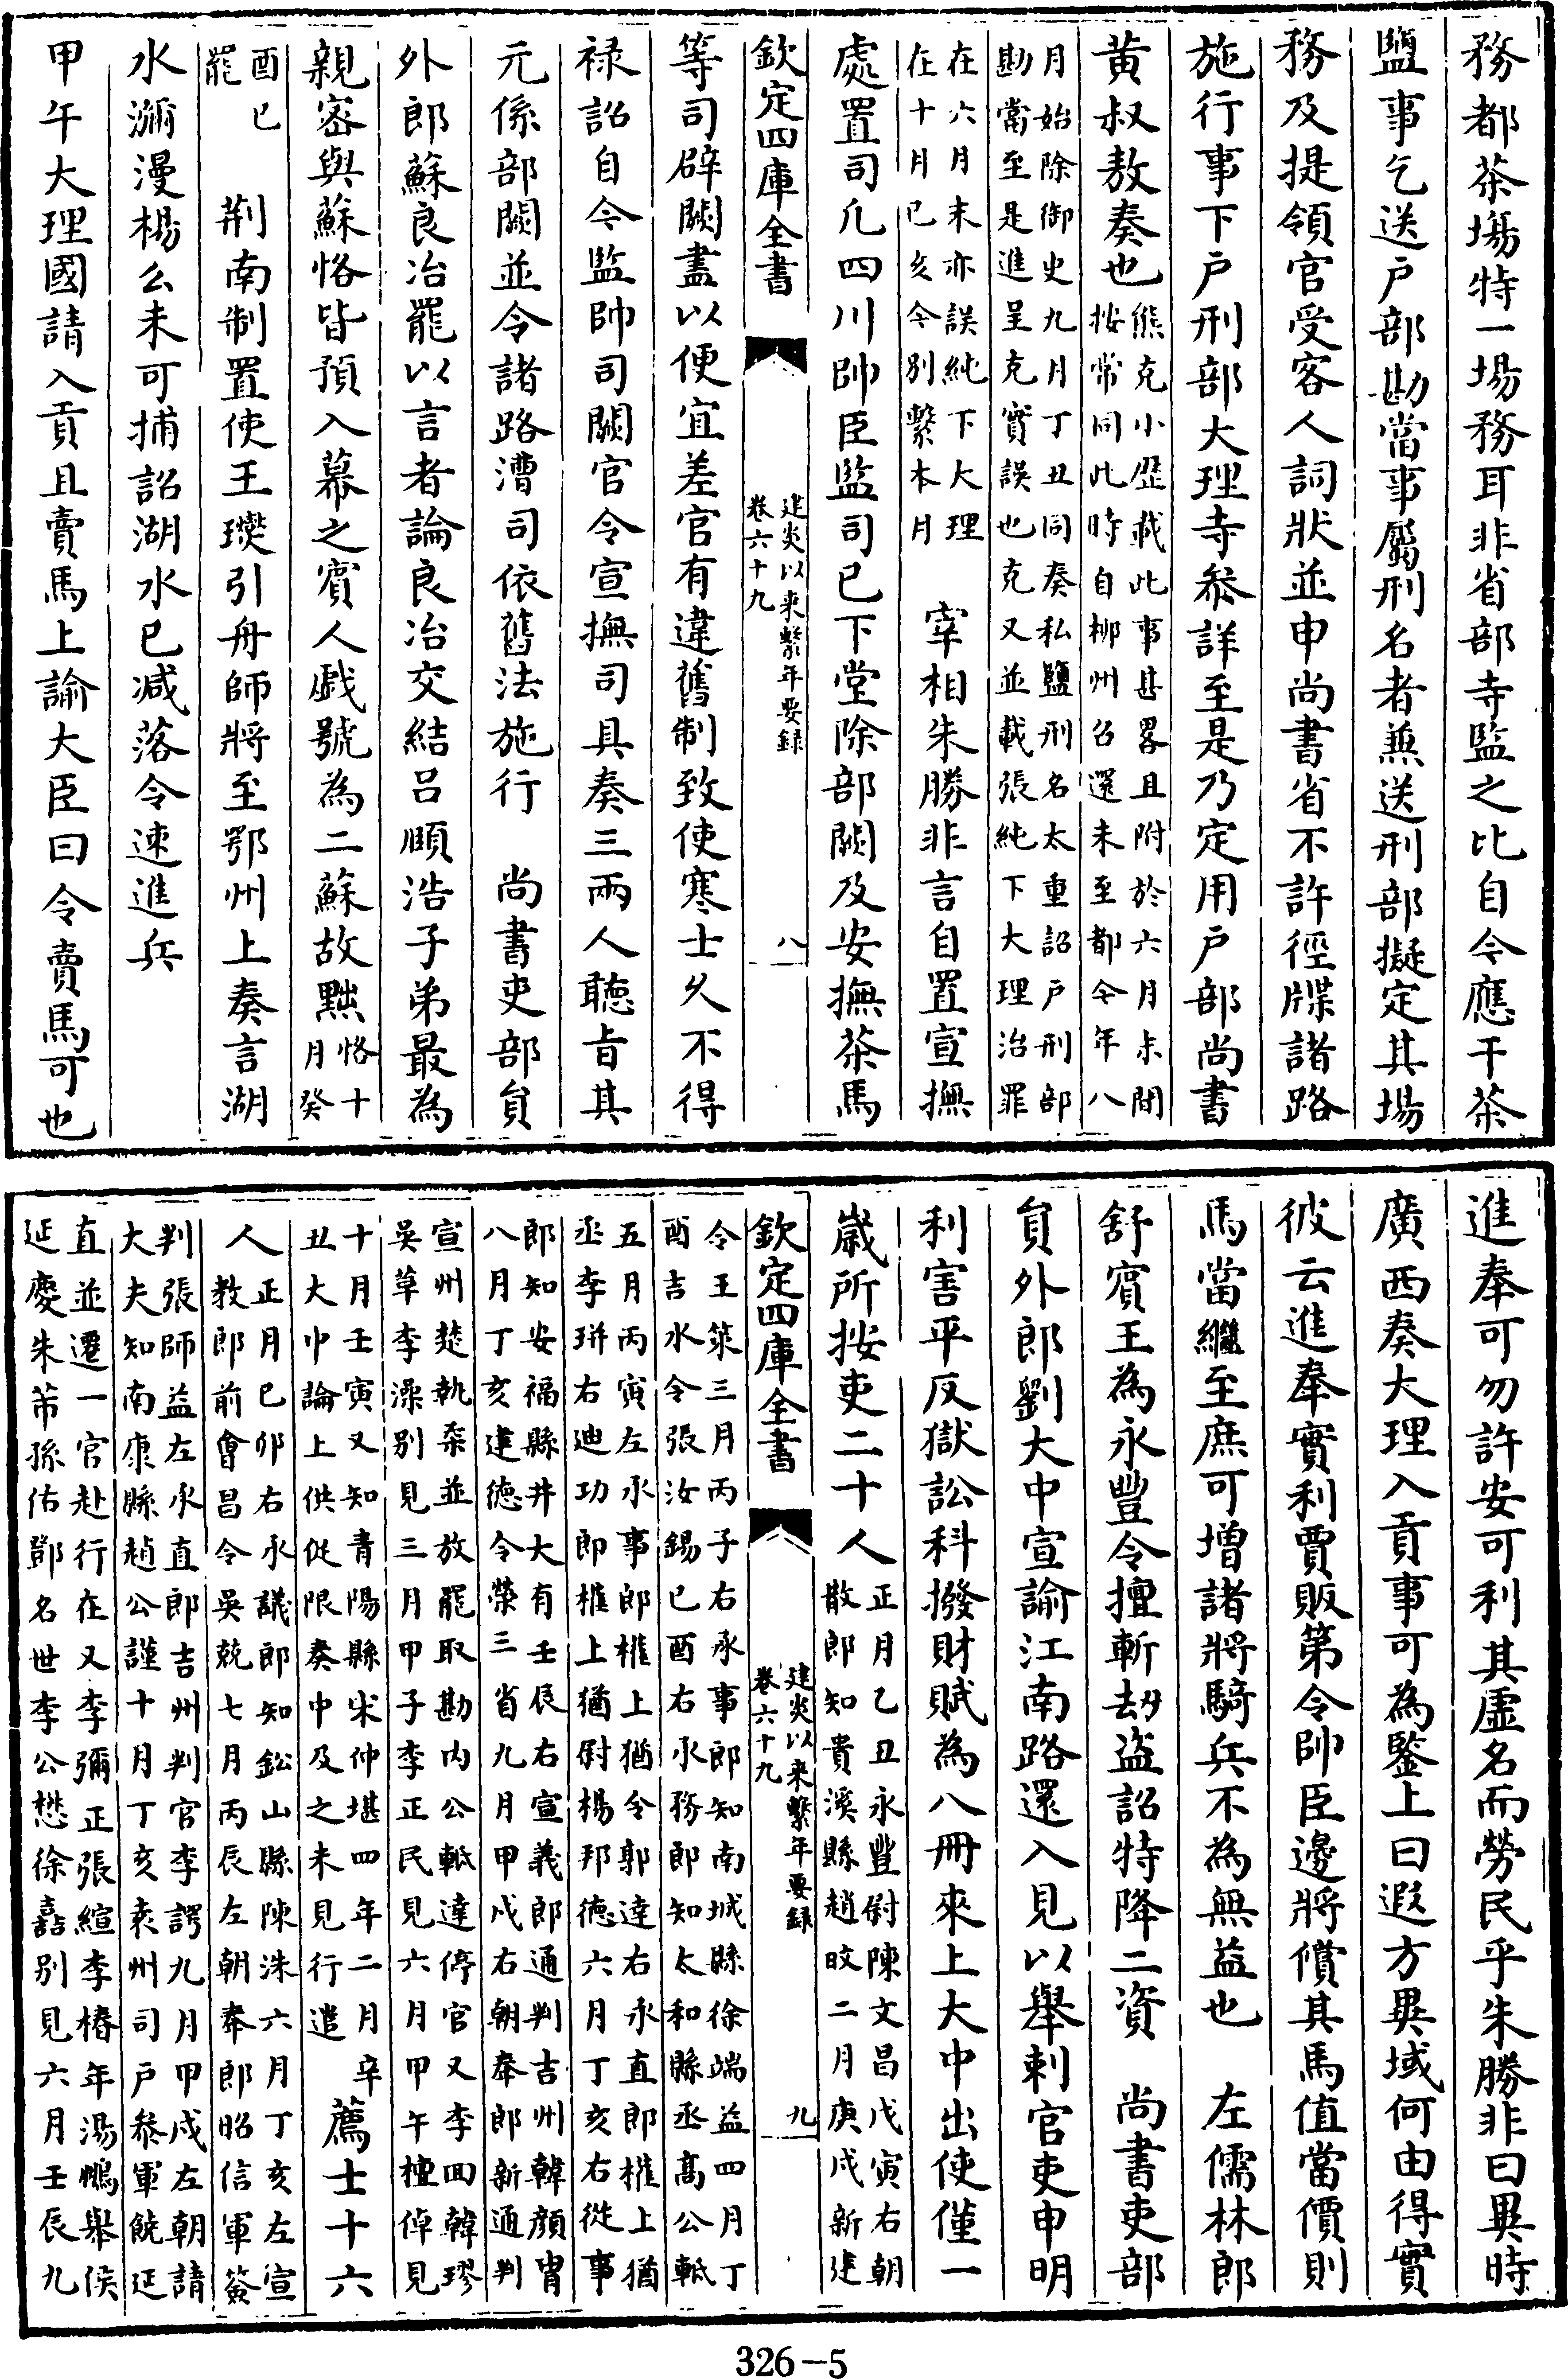 務都茶場特一場務耳非省部寺監之比自今應干茶
鹽事乞送戸部勘當事屬刑名者兼送刑部擬定其場
務及提領官受客人詞狀並申尚書省不許徑牒諸路
施行事下戸刑部大理寺叅詳至是乃定用戸部尚書
黄叔敖奏也熊克小歴載此事甚畧且附於六月末間
按常同此時自柳州召還未至都今年八
月始除御史九月丁丑同奏私鹽刑名太重詔戸刑部
勘當至是進呈克實誤也克又並載張純下大理治罪
在六月末亦誤純下大理
在十月已亥今別繫本月
宰相朱勝非言自置宣撫
處置司凢四川帥臣監司已下堂除部闕及安撫茶馬
欽定四庫全書
建炎以来繫年要録
卷六十九
八
等司辟闕盡以便宜差官有違舊制致使寒士久不得
禄詔自今監帥司闕官令宣撫司具奏三兩人聽㫖其
元係部闕並令諸路漕司依舊法施行 尚書吏部員
外郎蘇良冶罷以言者論良冶交結吕頥浩子弟最為
親宻與蘇恪皆預入幕之賓人戯號為二蘇故黜恪十
月癸
酉已
罷
荆南制置使王𤫉引舟師將至鄂州上奏言湖
水瀰漫楊么未可捕詔湖水已减落令速進兵
甲午大理國請入貢且賣馬上諭大臣曰令賣馬可也
進奉可勿許安可利其虚名而勞民乎朱勝非曰異時
廣西奏大理入貢事可為鑒上曰遐方異域何由得實
彼云進奉實利賈販第令帥臣邊將償其馬值當價則
馬當繼至庶可増諸將騎兵不為無益也 左儒林郎
舒賓王為永豐令擅斬刼盗詔特降二資 尚書吏部
員外郎劉大中宣諭江南路還入見以舉刺官吏申明
利害平反獄訟科撥財賦為八冊來上大中出使僅一
嵗所按吏二十人正月乙丑永豐尉陳文昌戊寅右朝
散郎知貴溪縣趙旼二月庚戌新建
欽定四庫全書
建炎以来繫年要録
卷六十九
九
令王䇿三月丙子右承事郎知南城縣徐端益四月丁
酉吉水令張汝錫已酉右承務郎知太和縣丞髙公軧
五月丙寅左承事郎權上猶令郭逹右承直郎權上猶
丞李珙右迪功郎權上猶尉楊邦徳六月丁亥右從事
郎知安福縣井大有壬辰右宣義郎通判吉州韓顔胄
八月丁亥建徳令榮三省九月甲戌右朝奉郎新通判
宣州楚執柔並放罷取勘内公軧逹停官又李囬韓璆
吳革李澡別見三月甲子李正民見六月甲午檀倬見
十月壬寅又知青陽縣宋仲堪四年二月辛
丑大中論上供従限奏中及之未見行遣
薦士十六
人正月已卯右承議郎知鈆山縣陳洙六月丁亥左宣
教郎前會昌令吳兢七月丙辰左朝奉郎昭信軍簽
判張師益左承直郎吉州判官李諤九月甲戌左朝請
大夫知南康縣趙公謹十月丁亥袁州司戸叅軍饒延
直並遷一官赴行在又李彌正張縚李椿年湯鵬舉侯
延慶朱芾孫佑鄧名世李公懋徐嚞別見六月壬辰九
326-5